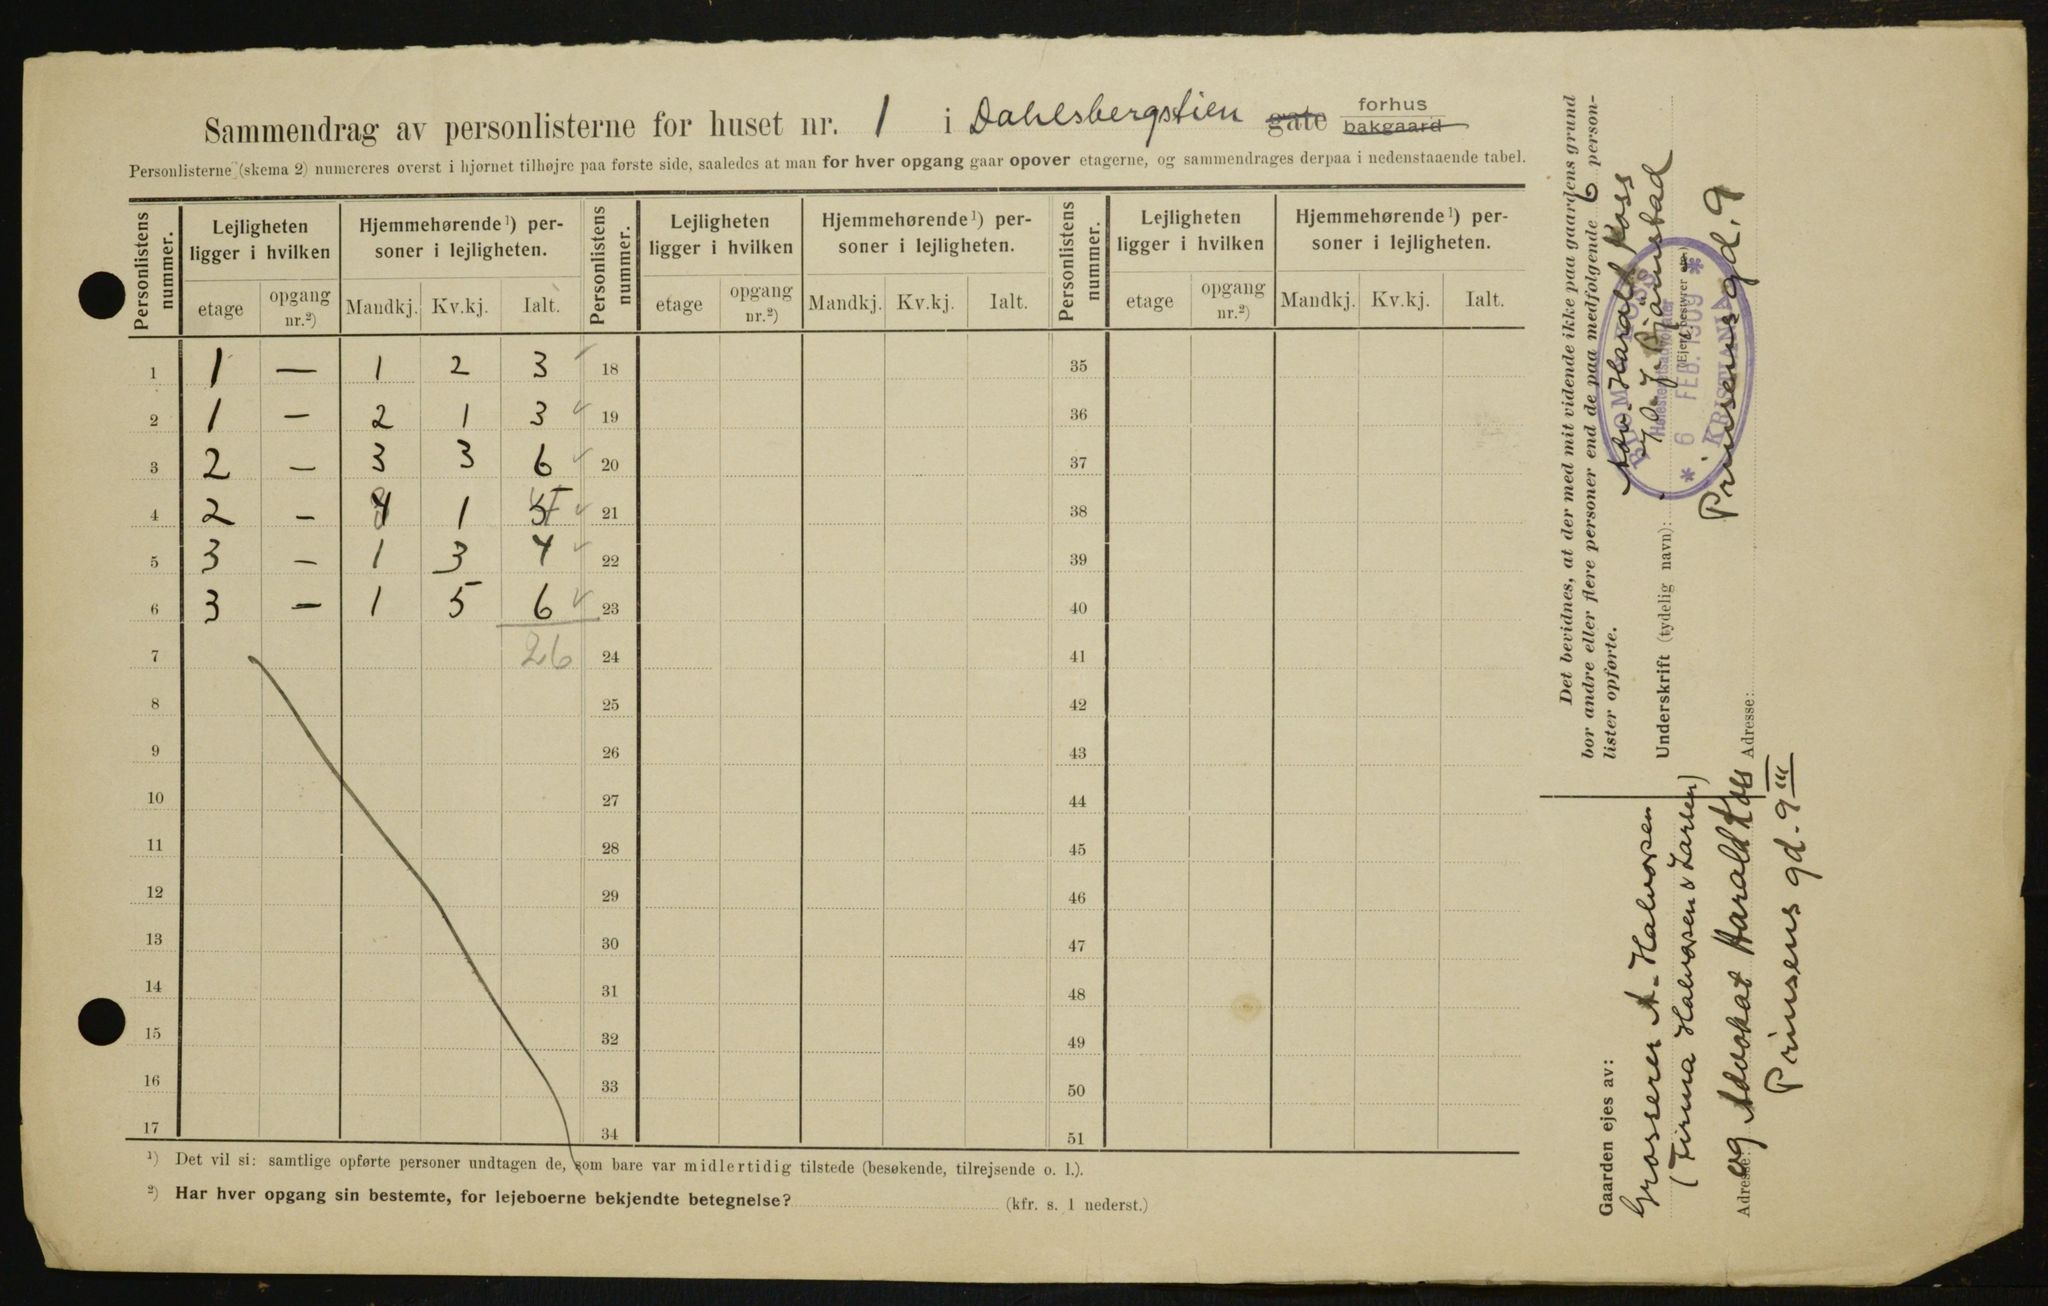 Sammendrag av personlisterne for huset nr. 1 i Dahlsbergstien gate forhus
bakgaard
Personlisterne (skema 2) numereres øverst i hjørnet tilhøjre paa første side, saaledes at man for hver opgang gaar opover etagerne, og sammendrages derpaa i nedenstaaende tabel.
Personlistens nummer. Lejligheten ligger i hvilken Hjemmehørende ¹) personer i lejligheten. Personlistens nummer. Lejligheten ligger i hvilken Hjemmehørende ¹) personer i lejligheten. Personlistens nummer. Lejligheten ligger i hvilken Hjemmehørende ¹) personer i lejligheten.
etage opgang nr.²) Mandkj. Kv.kj. Ialt. etage opgang nr.²) Mandkj. Kv.kj. Ialt. etage opgang nr.²) Mandkj. Kv.kj. Ialt.
1 1 — 1 2 3 18 35
2 1 — 2 1 3 19 36
3 2 — 3 3 6 20 37
4 2 — 1 21 38
5 3 — 1 3 4 22 39
6 3 — 1 5 6 23 40
7 26 24 41
8 25 42
9 26 43
10 27 44
11 28 45
12 29 46
13 30 47
14 31 48
15 32 49
16 33 50
17 34 51
¹) Det vil si: samtlige opførte personer undtagen de, som bare var midlertidig tilstede (besøkende, tilrejsende o. l.).
²) Har hver opgang sin bestemte, for lejeboerne bekjendte betegnelse? (kfr. s. 1 nederst.)
Det bevidnes, at der med mit vidende ikke paa gaardens grund
bor andre eller flere personer end de paa medfølgende 6 person-
lister opførte.
Adv. Harald Koss
Underskrift (tydelig navn):
(Ejer, bestyrer
Prinsensgd. 9
Adresse:
KOSS
Høiesteretsadvokater
* 6 FEB. 1909 *
KRISTIANIA
Gaarden ejes av:
Grosserer A. Halvorsen
(Firma Halvorsen & Larsen)
og Advokat Harald Koss
Adresse:
Prinsens gd. 9 III